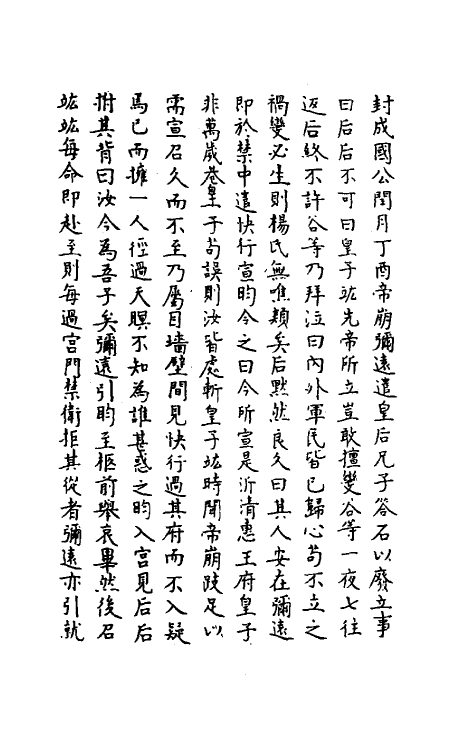 封成國公閏月丁酉帝崩彌遠遣皇后兄子谷石以廢立事
曰后后不可曰皇子竑先帝所立豈敢擅變谷等一夜七往
返后終不許谷等乃拜泣曰內外軍民皆已歸心苟不立之
禍變必生則楊氏無噍類矣后黙然良久曰其人安在彌遠
即於禁中遣快行宣昀令之曰今所宣是沂靖惠王府皇子
非萬歲巷皇子苟誤則汝皆處斬皇子竑時聞帝崩跂足以
需宣召久而不至乃屬目墻壁間見快行過其府而不入疑
焉已而擁一人徑過天暝不知為誰甚惑之昀入宮見后后
拊其背曰汝今為吾子矣彌遠引昀至柩前舉哀畢然後召
竑竑每命即赴至則每過宮門禁衛拒其從者彌遠亦引就